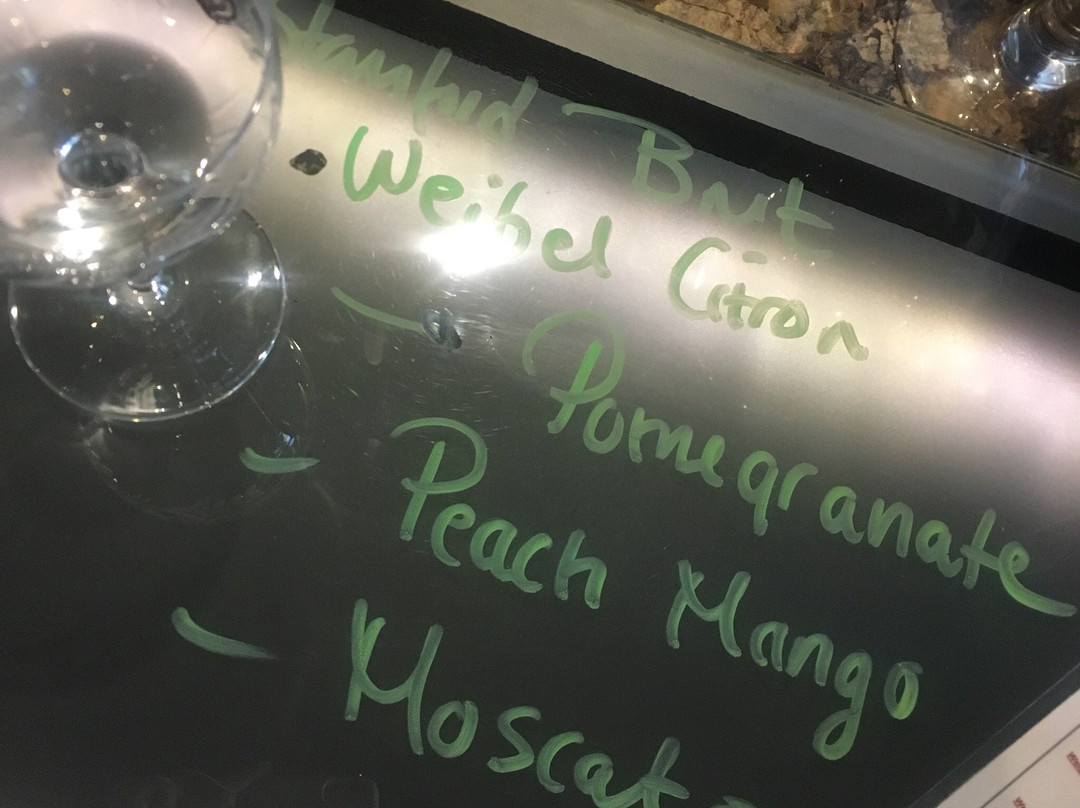 Stanford - Brut
• Weibel Citron
- Pomegranate
- Peach Mango
- Moscato